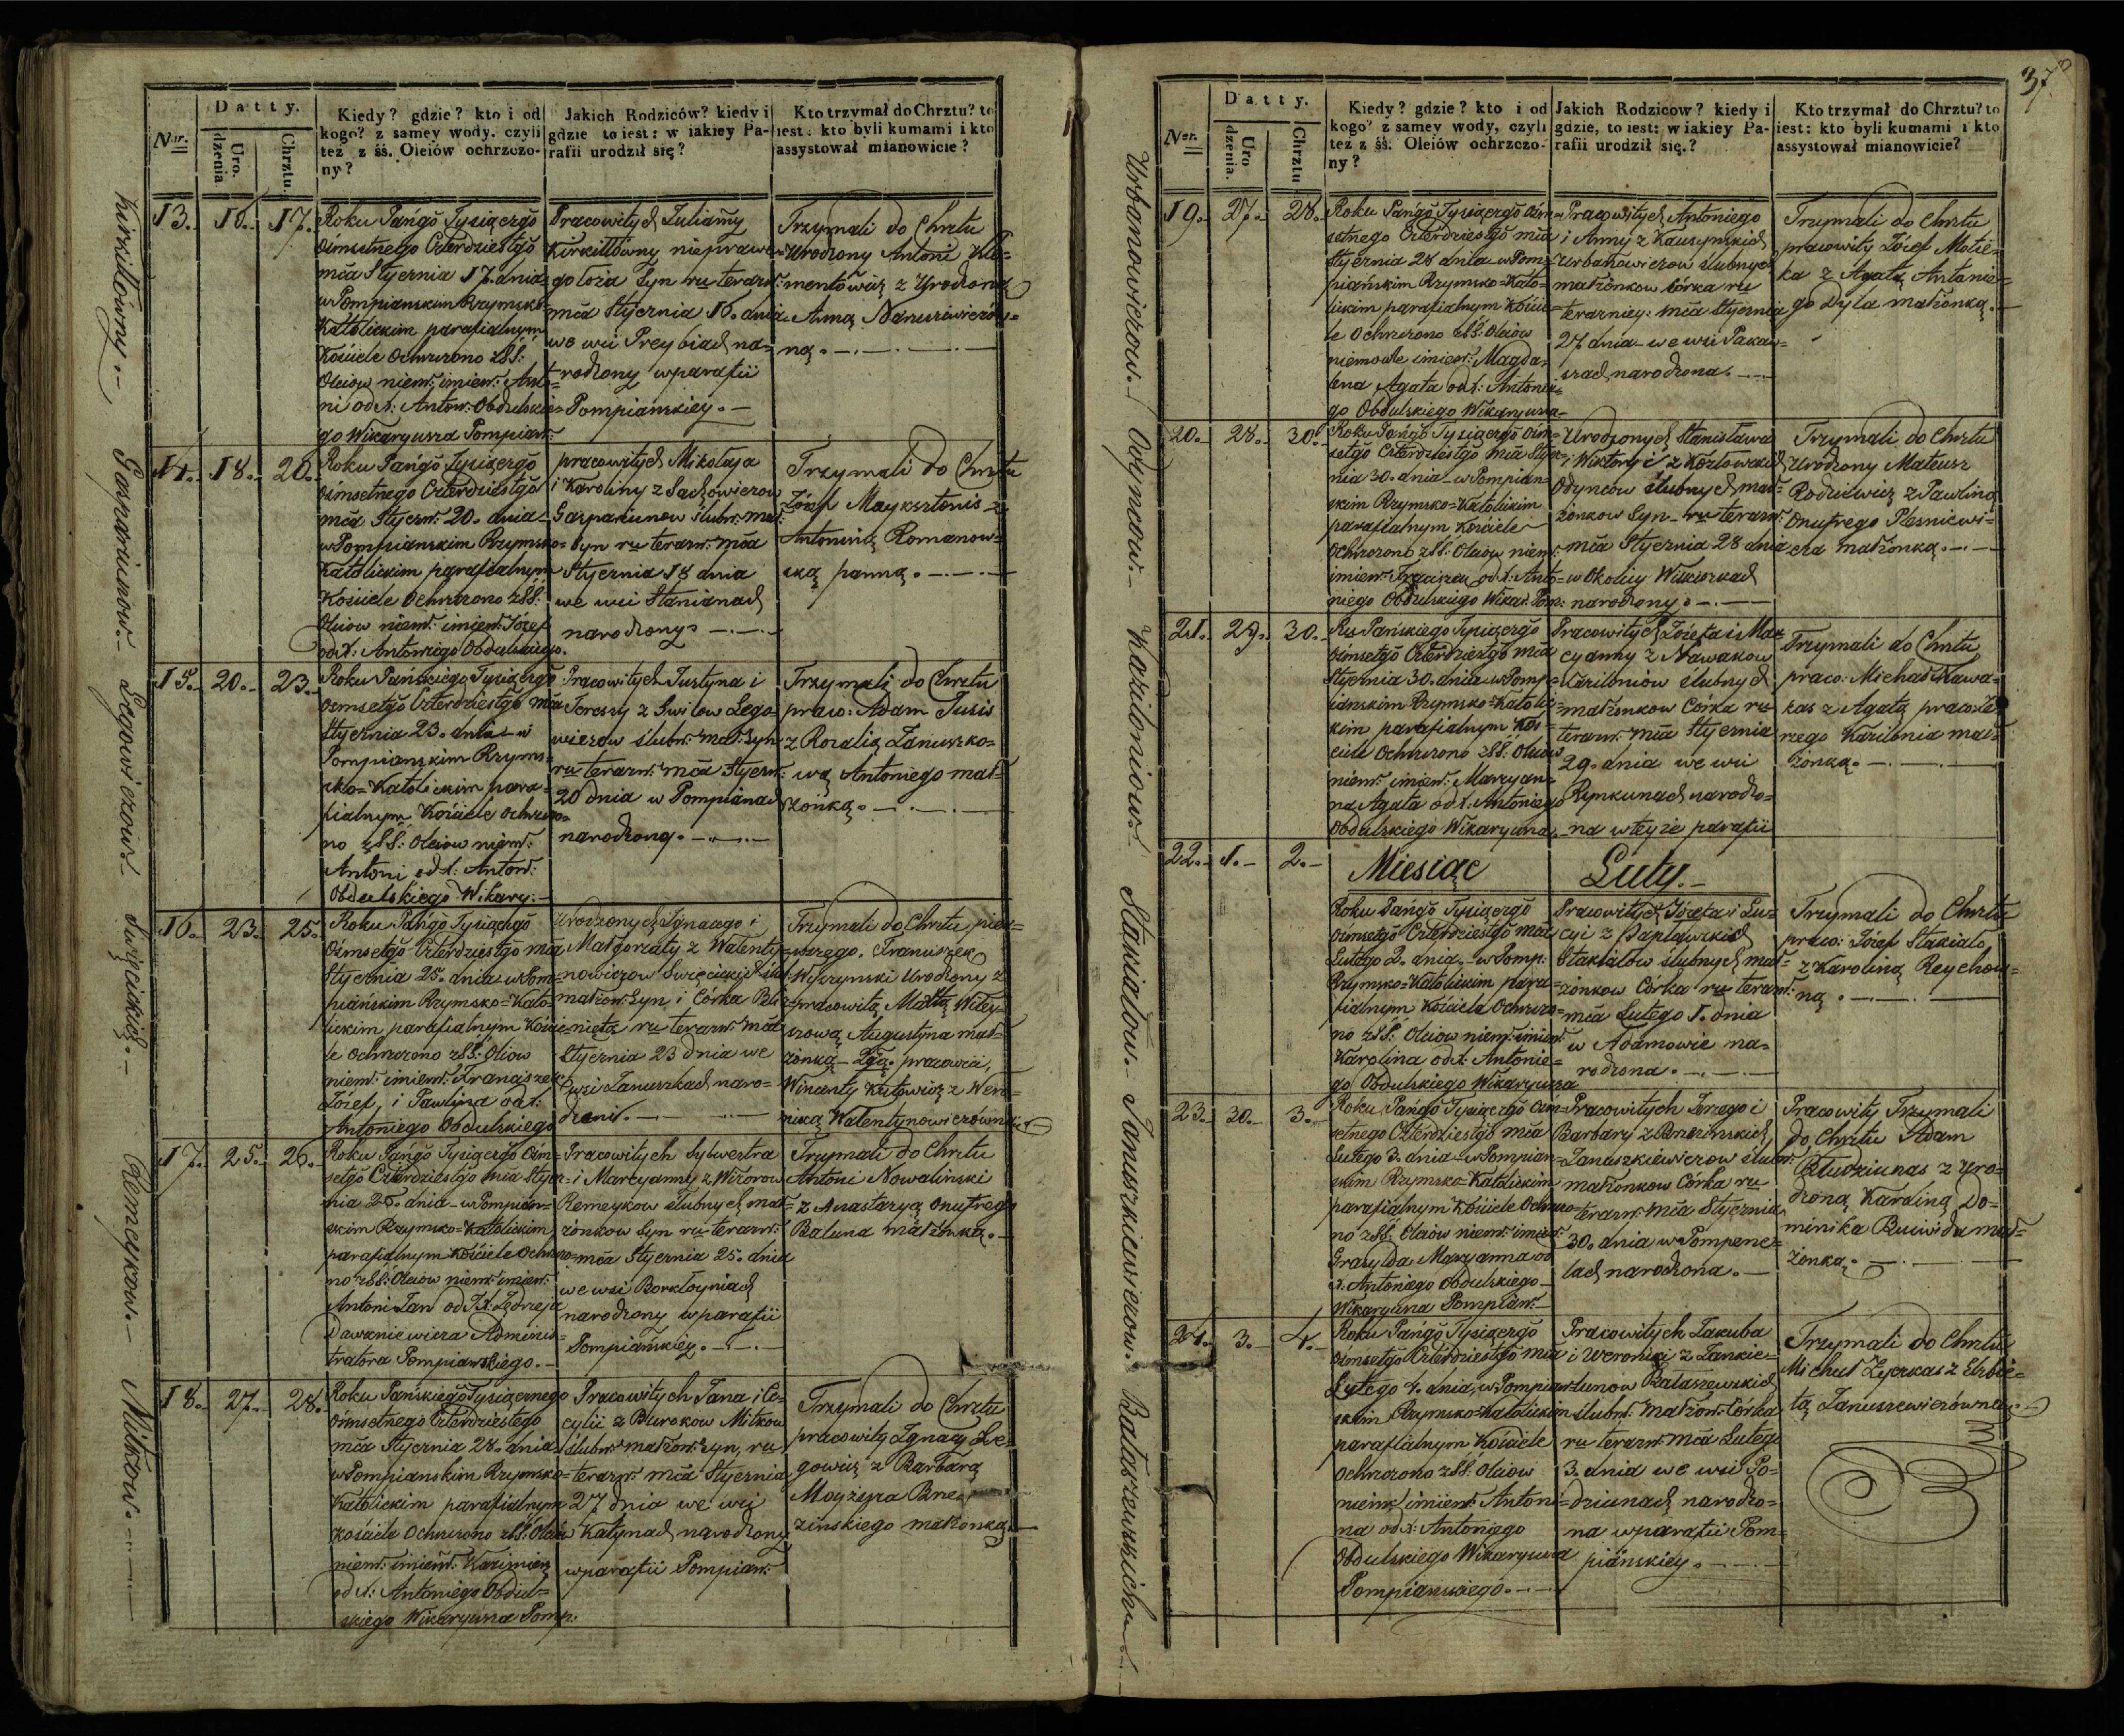 Nr.
Datty.
Uro.
dzenia
Chrztu.
Kiedy? gdzie? kto i od
kogo? z samey wody, czyli
też z śś. Oleiów ochrzczo-
ny?
Jakich Rodziców? kiedy i
gdzie to iest: w iakiey Pa-
rafii urodził się?
Kto trzymał do Chrztu? to
iest: kto byli kumami i kto
assystował mianowicie?
Kirkiłłówny.
13. 16. 17.
Roku Pańgo Tysiączgo
ośmsetnego Czterdziestgo
mca Stycznia 17. dnia
w Pompianskim Rzymsko
Katolickim parafialnym
Kościele Ochrzczono z SS:
Oleiow niem: imiem: Anto=
ni od X: Anton: Obdulskie=
go Wikaryusza Pompian:
Pracowitych Julianny
Kirkiłłówny niepraw=
go łoża Syn ru terazn:
mca Stycznia 16. dnia
we wsi Preybiach na=
rodzony w parafii
Pompianskiey.
Trzymali do Chrztu
Urodzony Antoni Kle=
mentowicz z Urodzoną
Anną Januszewiczów=
ną.
Gaspariunow.
14. 18. 20.
Roku Pańgo Tysiączgo
ośmsetnego Czterdziestgo
mca Styczn: 20. dnia
w Pompianskim Rzymsko=
Katolickim parafialnym
Kościele Ochrzczono z SS:
Oleiow niem: imiem: Józef
od X: Antoniego Obdulskiego.
pracowitych Mikołaja
i Karoliny z Saczowiczow
Gaspariunow ślubn: mał:
Syn ru terazn: mca
Stycznia 18 dnia
we wsi Stanianach
narodzony
Trzymali do Chrztu
Józef Mayksztonis z
Antoniną Romanow=
ską panną.
Legowiczow.
15. 20. 23.
Roku Pańskiego Tysiączgo
ośmsetgo Czterdziestgo mca
Stycznia 23. dnia w
Pompianskim Rzyms=
ko=Katolickim para=
fialnym Kościele ochrzczo=
no z SS: Oleiow niem:
Antoni od X: Anton:
Obdulskiego Wikary:
Pracowitych Justyna i
Teressy z Gwilow Lego=
wiczow ślubn: mał: Syn
ru terazn: mca Styczn:
20 dnia w Pompianach
narodzony.
Trzymali do Chrztu
praco: Adam Tusis
z Rozalią Januszko=
wą Antoniego mał=
żonką.
Swięcickich.
16. 23. 25.
Roku Pańgo Tysiączgo
Ośmsetgo Czterdziestgo mca
Stycznia 25. dnia w Pom=
piańskim Rzymsko=Kato=
lickim parafialnym Kości=
le Ochrzczono z SS: Oliow
niem: imiem: Franciszek
Józef, i Paulina od X.
Antoniego Obdulskiego
Urodzonych Ignacego i
Małgorzaty z Walenty=
nowiczow Swięcickich ślu:
małżon: Syn i Córka Bli=
znięta ru terazn: mca
Stycznia 23 dnia we
wsi Januszkach naro=
dzeni.
Trzymali do Chrztu pier=
wszego. Franciszek
Wyrzynski Urodzony z
pracowitą Martą
szową Augustyna mał=
żonką
Wincenty z Wero=
niką Walentynowiczówną
Remeykow.
17. 25. 26.
Roku Pańgo Tysiączgo Ośm=
setgo Czterdziestgo mca Stycz=
nia 26. dnia w Pompian=
skim Rzymsko=Katolickim
parafialnym Kościele Ochrzczo=
no z SS: Oleiow niem: imiem:
Antoni Jan od JX: Jędrzeja
Dawkniewicza Adminis=
tratora Pompianskiego.
Pracowitych Sylwestra
i Marcyanny z Wizorow
Remeykow ślubnych mał=
żonkow Syn ru terazn:
mca Stycznia 25. dnia
we wsi Borkłoyniach
narodzony w parafii
Pompiańskiey.
Trzymali do Chrztu
Antoni Nowalinski
z Anastazyą Onufrego
Baluna małżonką.
Mitkow.
18. 27. 28.
Roku Pańskiego Tysiącznego
Ośmsetnego Czterdziestego
mca Stycznia 28. dnia
w Pompianskim Rzymsko=
Katolickim parafialnym
Kościele Ochrzczono z SS: Oleiów
niem: imiem: Kazimierz
od X: Antoniego Obdul=
skiego Wikaryusza Pomp:
Pracowitych Jana i Ce=
cylii z Burokow Mitkow
ślubn: małżon: Syn, ru
terazn: mca Stycznia
27 dnia we wsi
Katynach narodzony
w parafii Pompian:
Trzymali do Chrztu
pracowity Ignacy Le=
gowicz z Barbarą
Moyżesza Brze=
zinskiego małżonką.
37
Nrr.
Datty.
Uro
dzenia.
Chrztu
Kiedy? gdzie? kto i od
kogo? z samey wody, czyli
też z śś. Oleiów ochrzczo-
ny?
Jakich Rodzicow? kiedy i
gdzie, to iest: w iakiey Pa-
rafii urodził się.?
Kto trzymał do Chrztu? to
iest: kto byli kumami i kto
assystował mianowicie?
Urbanowiczow.
19. 27. 28.
Roku Pańgo Tysiączgo Ośm=
setnego Czterdziestgo mca
Stycznia 28 dnia w Pom=
piańskim Rzymsko=Kato=
lickim parafialnym Koście=
le Ochrzczono z SS: Oleiow
niemowle imiem: Magda=
lena Agata od X: Antonie=
go Obdulskiego Wikaryusza
Pracowitych Antoniego
i Anny z Kauszynskich
Urbanowiczow ślubnych
małżonkow Córka ru
terazniey: mca Stycznia
27 dnia we wsi Pakau=
szach narodzona.
Trzymali do Chrztu
pracowity Józef Motie=
ka z Agatą Antonie=
go Dyla małżonką.
Odyncow.
20. 28. 30.
Roku Pańgo Tysiączgo Ośm=
setgo Czterdziestgo mca Stycz=
nia 30. dnia w Pompian=
skim Rzymsko=Katolickim
parafialnym Kościele
Ochrzczono z SS: Oleiow niem:
imiem: Franciszek od X: Anto=
niego Obdulskiego Wikar: Pom:
Urodzonych Stanisława
i Wiktoryi z Kozłowskich
Odyncow ślubnych mał=
żonkow Syn ru terazn:
mca Stycznia 28 dnia
w Okolicy Wilkiszkach
narodzony.
Trzymali do Chrztu
Urodzony Mateusz
Roduiewicz z Pauliną
Onufrego Plesniewi=
cza małżonką.
Kazilioniow.
21. 29. 30.
Ru Pańskiego Tysiączgo
Ośmsetgo Czterdziestgo mca
Stycznia 30. dnia w Pomp=
ianskim Rzymsko=Katolic=
kim parafialnym Koś=
ciele Ochrzczono z SS: Oleiow
niem: imiem: Maryan=
na Agata od X: Antoniego
Obdulskiego Wikaryusza
Pracowitych Józefa i Mar=
cyanny z Nowakow
Kaziloniow ślubnych
małżonkow Córka ru
terazn: mca Stycznia
29. dnia we wsi
Rynkunach narodzo=
na w teyże parafii
Trzymali do Chrztu
praco: Michał Kawa=
kas z Agatą praco: Je
rzego Kazilonia mał=
żonką.
Stakiałow.
22. 1. 2.
Miesiąc Luty.
Roku Pańgo Tysiączgo
Ośmsetgo Czterdziestgo mca
Lutego 2. dnia w Pomp:
Rzymsko=Katolickim para=
fialnym Kościele Ochrzczo=
no z SS: Oleiow niem: imiem:
Karolina od X: Antonie=
go Obdulskiego Wikaryusza
Pracowitych Józefa i Lu=
cyi z Papławskich
Stakiałow ślubnych mał=
żonkow Córka ru terazn:
mca Lutego 1. dnia
w Adamowie na=
rodzona.
Trzymali do Chrztu
praco: Józef Stakiało
z Karoliną Reychow=
ną.
Januszkiewiczow.
23. 30. 3.
Roku Pańgo Tysiączgo Ośm=
setnego Czterdziestgo mca
Lutego 3. dnia w Pompian=
skim Rzymsko=Katolickim
parafialnym Kościele Ochrzczo=
no z SS: Oleiów niem: imiem:
Grasylda Maryanna od
X. Antoniego Obdulskiego
Wikaryusza Pompian:
Pracowitych Jerzego i
Barbary z Brzezinskich
Januszkiewiczow ślubn:
małżonkow Córka ru
terazn: mca Stycznia
30. dnia w Pompene=
lach narodzona.
Pracowity Trzymali
do Chrztu Adam
Błudziunas z Uro=
dzoną Karoliną Do=
minika Buiwida mał=
żonką.
Bałaszewskich.
24. 3. 4.
Roku Pańgo Tysiączgo
Ośmsetgo Czterdziestgo mca
Lutego 4. dnia, w Pompian=
skim Rzymsko=Katolickim
parafialnym Kościele
Ochrzczono z SS. Oleiow
niem: imiem: Antoni=
na od X: Antoniego
Obdulskiego Wikaryusza
Pompianskiego.
Pracowitych Jakuba
i Weroniki z Jankie=
lunow Bałaszewskich
ślubn: małżon: Córka
ru terazn: mca Lutego
3. dnia we wsi Po=
dziunach narodzo=
na w parafii Pom=
piańskiey.
Trzymali do Chrztu
Michał Zyckas z Elżbie=
tą Januszewiczówną.